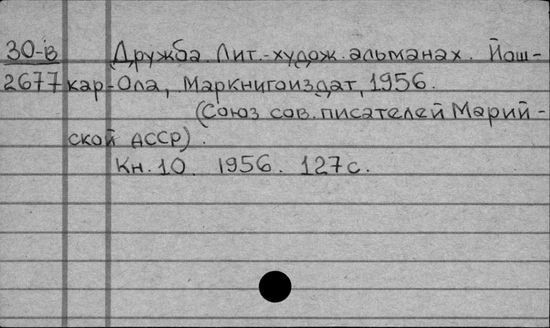 30-в Дружба. Лит.-худож. альманах. Йош-
2677 кар-Ола, Маркнигоиздат, 1956.
(Союз сов. писателей Марий-
ской АССР).
Кн. 10. 1956. 127с.